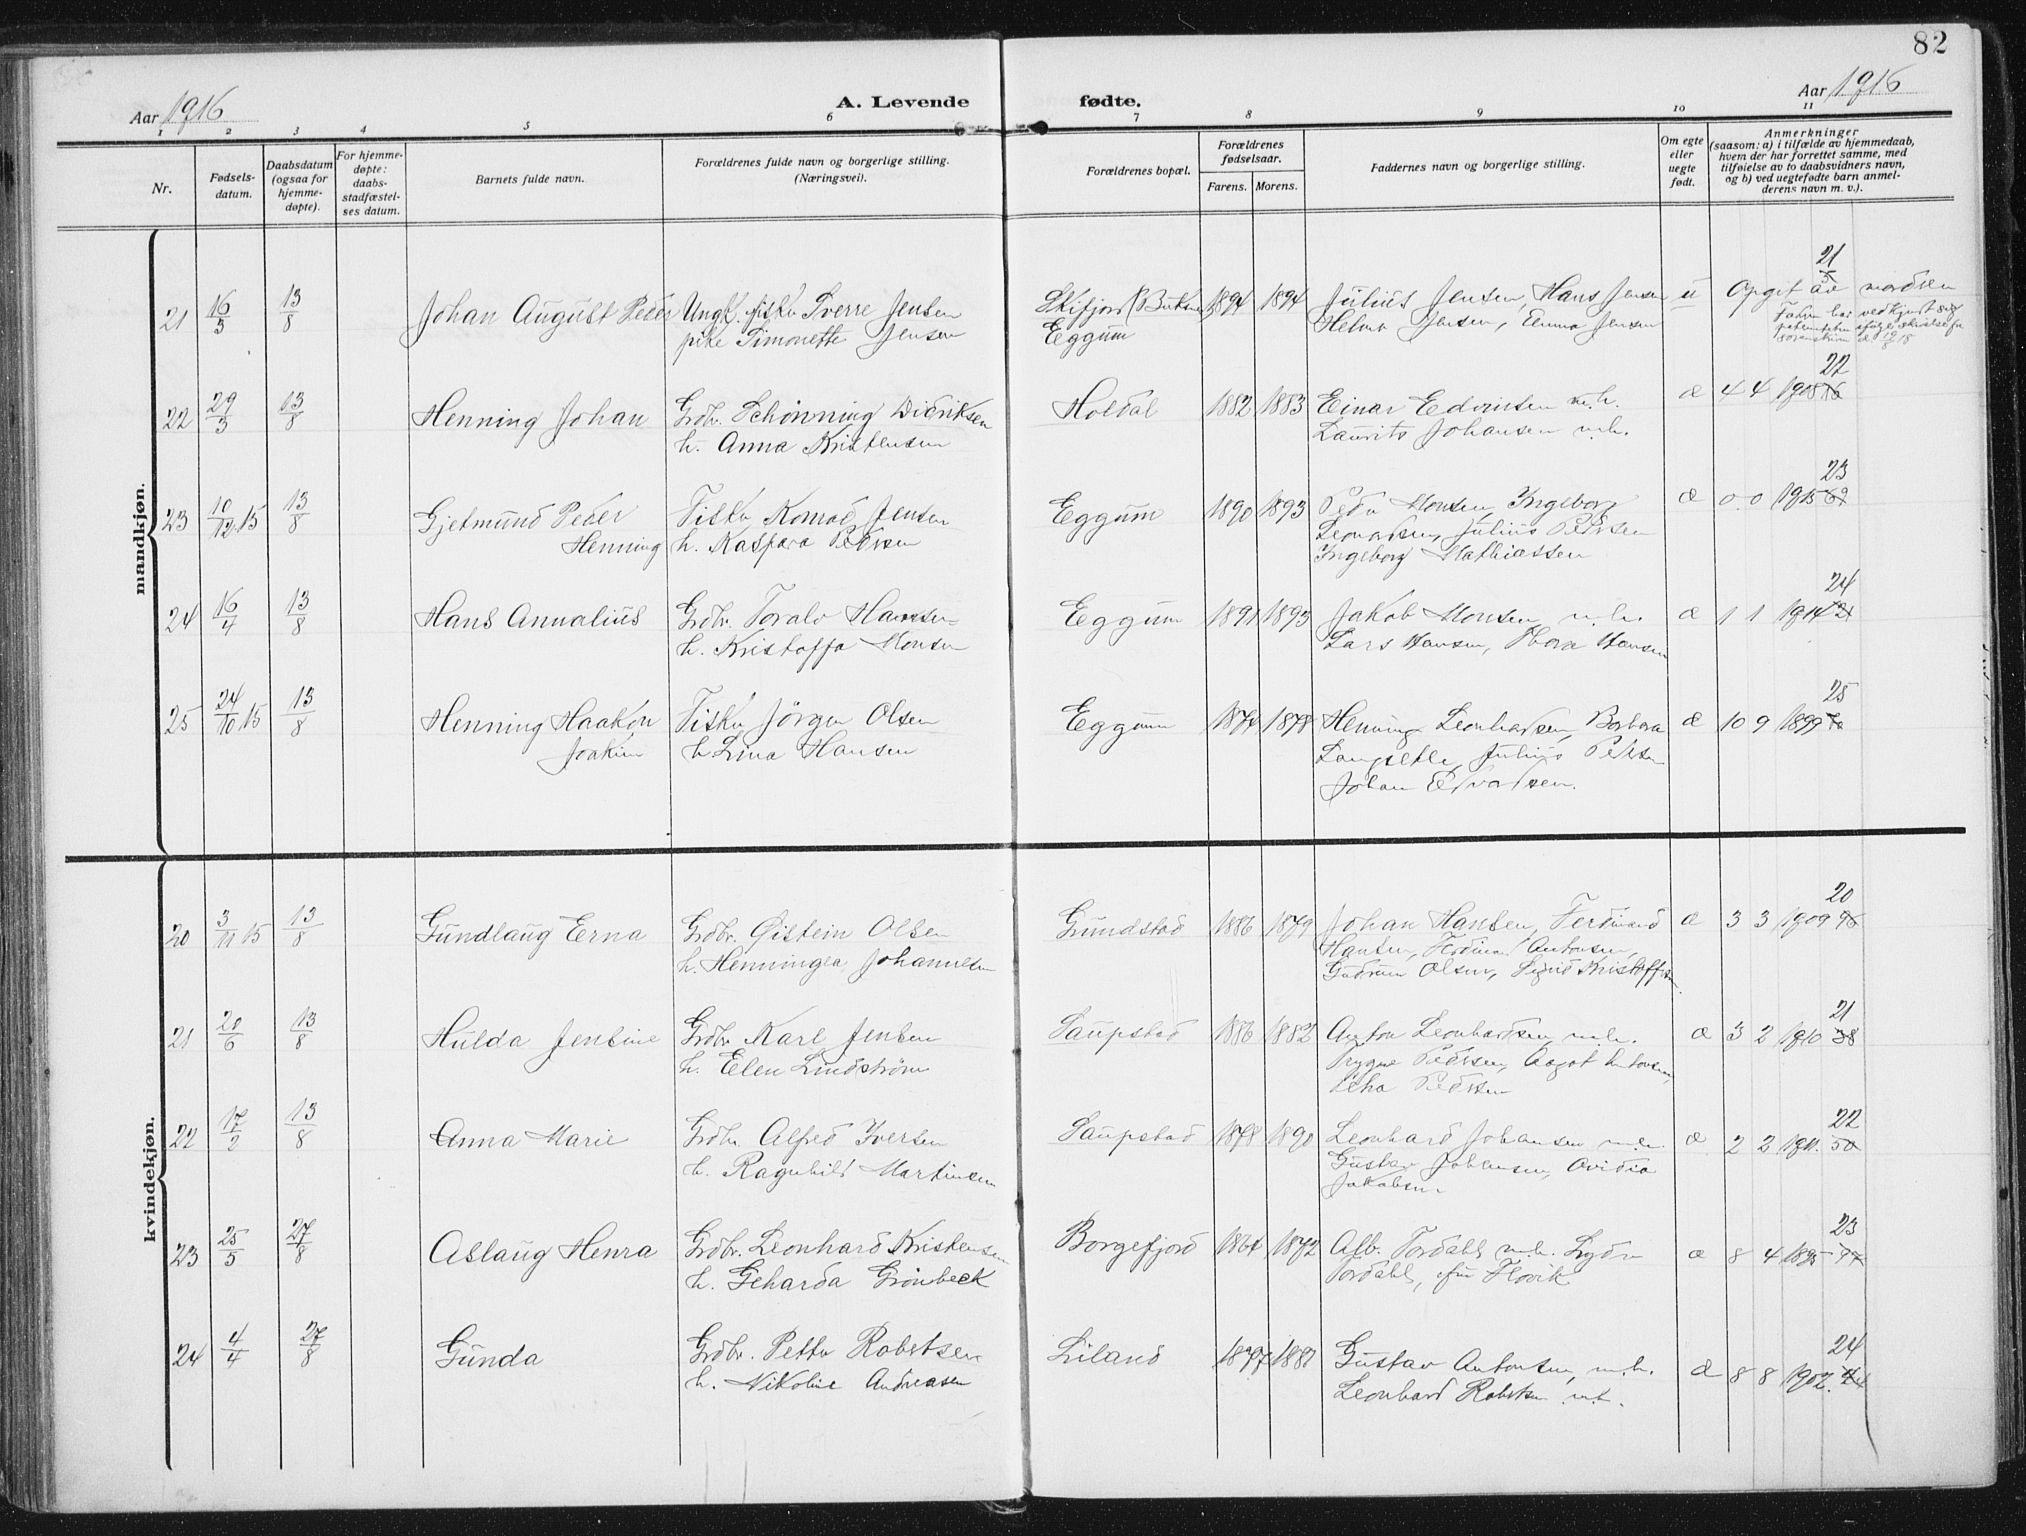 82
Aar 1916
A. Levende fødte.
Aar 1916
1 2 3 4 5 6 7 8 9 10 11
Nr.
Fødsels-
datum.
Daabsdatum
(ogsaa for
hjemme-
døpte).
For hjemme-
døpte:
daabs-
stadfæstel-
ses datum.
Barnets fulde navn.
Forældrenes fulde navn og borgerlige stilling.
(Næringsvei).
Forældrenes bopæl.
Forældrenes
fødselsaar.
Farens. Morens.
Faddernes navn og borgerlige stilling.
Om egte
eller
uegte
født.
Anmerkninger
(saasom: a) i tilfælde av hjemmedaab,
hvem der har forrettet samme, med
tilføielse av to daabsvidners navn,
og b) ved uegtefødte barn anmel-
derens navn m. v.).
mandkjøn.
21
21 16/3 13/8 Johan August Peder Ungk. fisker Sverre Jensen Eggum 1894 1894 Julius Jensen, Hans Jensen u Opgit av
pike Simonette Jensen Helmer Jensen, Emma Jensen
22
22 29/3 13/8 Henning Johan Grdbr. Schønning Didriksen Holdal 1882 1883 Einar Edvinsen m.h. æ 4 4 1908
h. Anna Kristensen Laurits Johansen m.h.
23
23 10/12 15 13/8 Gjetmund Peder Fisker Konrad Jensen Eggum 1890 1893 Peder Monsen, Ingeborg æ 0 0 1915
Henning h. Kaspara Pedersen Leonardsen, Julius Pedersen
Ingeborg Mathiassen
24
24 16/4 13/8 Hans Annalius Grdbr. Toralv Hansen Eggum 1891 1893 Jakob Monsen m.h. æ 1 1 1914
h. Kristoffa Monsen Lars Hansen, Thora Hansen
25
25 24/10 15 13/8 Henning Haakon Fisker Jörgen Olsen Eggum 1874 1878 Henning Leonhardsen, Barbara æ 10 9 1899
Joakim h. Lina Hansen Julius Pedersen
Johan Edvardsen.
kvindekjøn.
20
20 3/11 15 13/8 Gundlaug Erna Grdbr. Øistein Olsen Grundstad 1886 1879 Johan Hansen, Ferdinand æ 3 3 1909 96
h. Henningea Johannesen Hansen, Antonsen,
Gudrun Olsen, Sigrid Kristoffersen.
21
21 20/6 13/8 Hulda Jensine Grdbr. Karl Jensen Saupstad 1886 1882 Anton Leonhardsen m.h. æ 3 2 1910 38
h. Elen Lindström Trygve Pedersen, Aagot Antonsen,
Pedersen
22
22 17/2 13/8 Anna Marie Grdbr. Alfred Iversen Saupstad 1878 1890 Leonhard Johansen m.h. æ 2 2 1911. 50
h. Ragnhild Martinsen Gustav Johansen, Ovidia
Jakobsen
23
23 25/5 27/8 Aslaug Henra Grdbr. Leonhard Kristensen Borgefjord 1864 1872 Alb. Tordahl m.h. æ 8 4 1895 97
h. Geharda Grønbeck Tordahl, fru Flovik
24
24 4/4 27/8 Gunda Grdbr. Petter Robertsen Liland 1877 1881 Gustav Antonsen, m.h. æ 8 8 1902.
h. Nikoline Andreasen Leonhard Robertsen m.h.